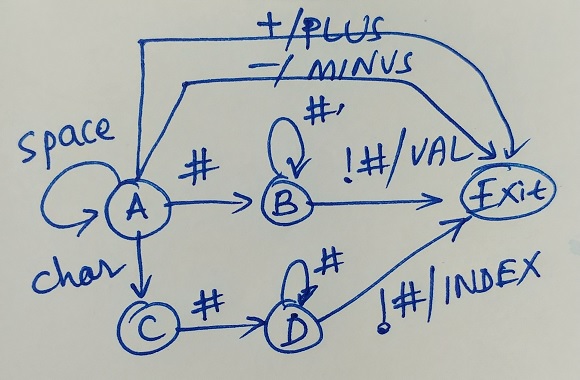 +/PLUS
-/MINUS
#
space
#
!#/VAL
A
B
Exit
char
#
#
!#/INDEX
C
D